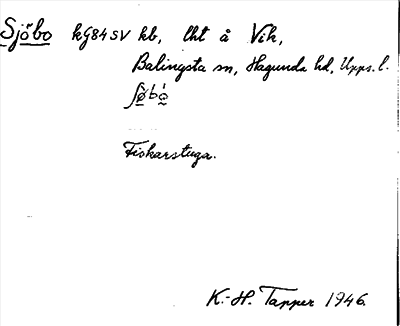 Sjöbo kG84SV kb, lht å Vik,
Balingsta sn, Hagunda hd, Upps.l.
Fiskarstuga.
K.-H. Tapper 1946.